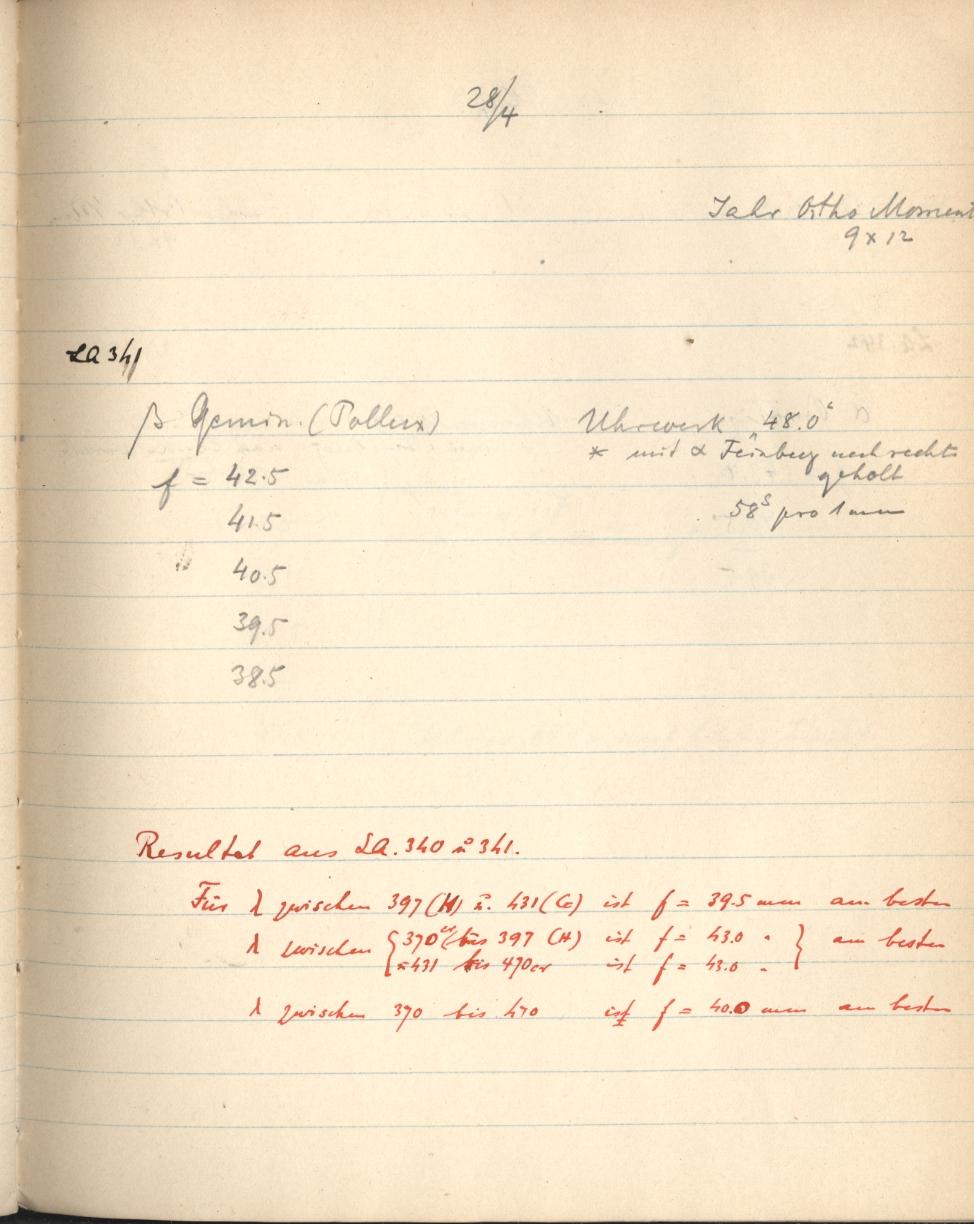 28/4
Jahr Ortho Moment
9 x 12
LA 341
β Gemin. (Pollux)
Uhrwerk 48.0
* mit α Feinbeweg nach rechts
geholt
f = 42.5
58s pro 1 mm
41.5
40.5
39.5
38.5
Resultat aus LA. 340 u 341.
Für λ zwischen 397 (H) u. 431 (G) ist f = 39.5 mm am besten
λ zwischen { 370 bis 397 (H) ist f = 43.0 " } am besten
431 bis 470 ist f = 43.0 "
λ zwischen 370 bis 470 ist f = 40.0 mm am besten